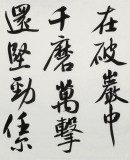 在破巖中
千磨萬擊
還堅勁任